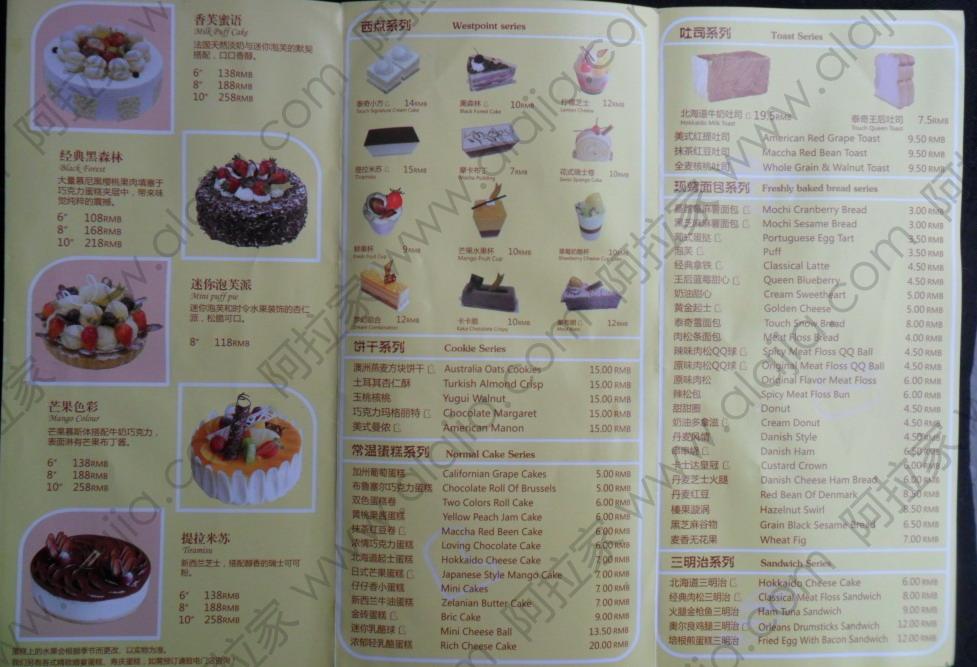 香芙蜜语
Milk Puff Cake
法国天然淡奶与迷你泡芙的默契
搭配，口口香醇。
6" 138RMB
8" 188RMB
10" 258RMB
经典黑森林
Black Forest
大量慕尼黑樱桃果肉填塞于
巧克力蛋糕夹层中，带来味
觉纯粹的震撼。
6" 108RMB
8" 168RMB
10" 218RMB
迷你泡芙派
Mini puff pie
迷你泡芙和时令水果装饰的杏仁
派，松脆可口。
8" 118RMB
芒果色彩
Mango Colour
芒果慕斯体搭配牛奶巧克力，
表面淋有芒果布丁酱。
6" 138RMB
8" 188RMB
10" 258RMB
提拉米苏
Tiramisu
新西兰芝士，搭配醇香的瑞士可可
粉。
6" 138RMB
8" 188RMB
10" 258RMB
蛋糕上的水果会根据季节而更改，以实物为准。
西点系列 Westpoint series
泰奇小方 14RMB
Touch Signature Cream Cake
黑森林 10RMB
Black Forest Cake
柠檬芝士 12RMB
Lemon Cheese
提拉米苏 15RMB
Tiramisu
摩卡布丁 7RMB
Mocha Pudding
花式瑞士卷 10RMB
Swiss Sponge Cake
鲜果杯 9RMB
Fresh Fruit Cup
芒果水果杯 10RMB
Mango Fruit Cup
草莓奶酪杯 10RMB
Strawberry Cheese Cup Cake
梦幻组合 12RMB
Dream Combination
卡卡脆 10RMB
Kaka Chocolate Crispy
12RMB
饼干系列 Cookie Series
澳洲燕麦方块饼干 Australia Oats Cookies 15.00RMB
土耳其杏仁酥 Turkish Almond Crisp 15.00RMB
玉桃核桃 Yugui Walnut 15.00RMB
巧克力玛格丽特 Chocolate Margaret 15.00RMB
美式曼侬 American Manon 15.00RMB
常温蛋糕系列 Normal Cake Series
加州葡萄蛋糕 Californian Grape Cakes 5.00RMB
布鲁塞尔巧克力蛋糕 Chocolate Roll Of Brussels 5.00RMB
双色蛋糕卷 Two Colors Roll Cake 6.00RMB
黄桃果酱蛋糕 Yellow Peach Jam Cake 6.00RMB
抹茶红豆卷 Maccha Red Been Cake 6.00RMB
浓情巧克力蛋糕 Loving Chocolate Cake 6.00RMB
北海道起士蛋糕 Hokkaido Cheese Cake 7.00RMB
日式芒果蛋糕 Japanese Style Mango Cake 7.00RMB
仔仔香小蛋糕 Mini Cakes 7.00RMB
新西兰牛油蛋糕 Zelanian Butter Cake 7.00RMB
金砖蛋糕 Bric Cake 9.00RMB
迷你乳酪球 Mini Cheese Ball 13.50RMB
浓郁轻乳酪蛋糕 Rich Cheese Cake 20.00RMB
吐司系列 Toast Series
北海道牛奶吐司 19.5RMB
Hokkaido Milk Toast
泰奇王后吐司 7.5RMB
Touch Queen Toast
美式红提吐司 American Red Grape Toast 9.50RMB
抹茶红豆吐司 Maccha Red Bean Toast 9.50RMB
全麦核桃吐司 Whole Grain & Walnut Toast 9.50RMB
现烤面包系列 Freshly baked bread series
蔓越莓麻薯面包 Mochi Cranberry Bread 3.00RMB
黑芝麻麻薯面包 Mochi Sesame Bread 3.00RMB
葡式蛋挞 Portuguese Egg Tart 3.50RMB
泡芙 Puff 3.50RMB
经典拿铁 Classical Latte 4.50RMB
王后蓝莓甜心 Queen Blueberry 4.50RMB
奶油甜心 Cream Sweetheart 5.00RMB
黄金起士 Golden Cheese 5.00RMB
泰奇雪面包 Touch Snow Bread 8.00RMB
肉松条面包 Meat Floss Bread 4.00RMB
辣味肉松QQ球 Spicy Meat Floss QQ Ball 4.50RMB
原味肉松QQ球 Original Meat Floss QQ Ball 4.50RMB
原味肉松 Original Flavor Meat Floss 6.00RMB
辣松包 Spicy Meat Floss Bun 6.00RMB
甜甜圈 Donut 4.50RMB
奶油多拿滋 Cream Donut 4.50RMB
丹麦风情 Danish Style 4.50RMB
Danish Ham 6.50RMB
卡士达皇冠 Custard Crown 6.00RMB
丹麦芝士火腿 Danish Cheese Ham Bread 6.00RMB
丹麦红豆 Red Bean Of Denmark 8.50RMB
榛果漩涡 Hazelnut Swirl 8.50RMB
黑芝麻谷物 Grain Black Sesame Bread 6.50RMB
麦香无花果 Wheat Fig 7.00RMB
三明治系列 Sandwich Series
北海道三明治 Hokkaido Cheese Cake 6.00RMB
经典肉松三明治 Classical Meat Floss Sandwich 8.00RMB
火腿金枪鱼三明治 Ham Tuna Sandwich 9.00RMB
奥尔良鸡腿三明治 Orleans Drumsticks Sandwich 12.00RMB
培根煎蛋三明治 Fried Egg With Bacon Sandwich 12.00RMB
阿拉家 www.alajia.com